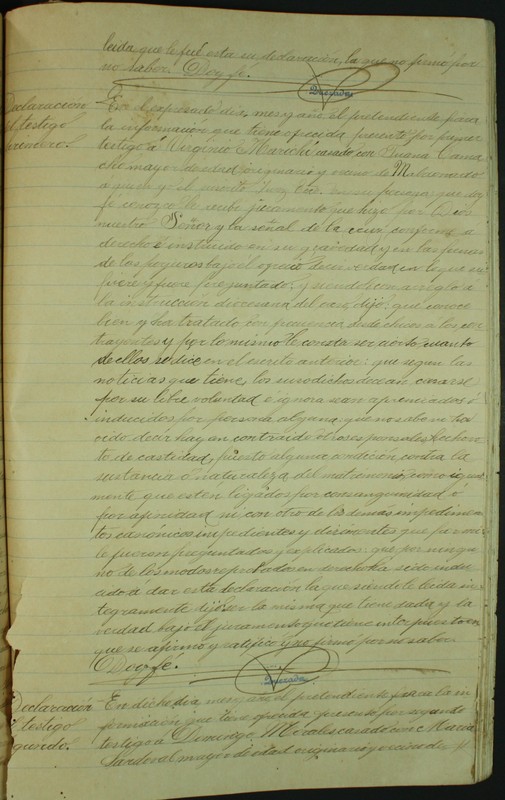 leida que le fué esta su declaración, la que no firmó por
no saber. Doy fé.
Quezada
Declaración
del testigo
primero.
En el expresado día, mes y año, el pretendiente para
la información que tiene ofrecida presentó por primer
testigo á Virginio casado con Juana Cama
cho mayor de edad, originario y vecino de
á quien yo el
fé conozco le recibí juramento que hizo por Dios
nuestro Señor y la señal de la cruz conforme a
derecho é instruido en su gravedad y en las penas
de los perjuros bajo él ofreció decir verdad en lo que su
piere y fuere preguntado: y siendolo con arreglo a
la instrucción diocesana del caso, dijo: que conoce
bien y ha tratado con frecuencia desde chicos a los con
trayentes y por lo mismo le consta ser cierto cuanto
de ellos se dice en el escrito anterior: que segun las
noticias que tiene, los susodichos desean casarse
por su libre voluntad é ignora sean apremiados ó
inducidos por persona alguna, que no sabe ni ha
oido decir hayan contraido otros esponsales, hecho vo
to de castidad, puesto alguna condición contra la
sustancia ó naturaleza del matrimonio, como igual
mente que esten ligados por consanguinidad ó
por afinidad ni con otro de los demas impedimen
tos canónicos impedientes y dirimentes que
le fueron preguntados y esplicados: que por ningu
no de los modos reprobados en derecho ha sido indu
cido a dar esta declaración la que siendole leida in
tegramente dijo ser la misma que tiene dada y la
verdad bajo el juramento que tiene interpuesto en
que se afirmó y ratificó y no firmó por no saber.
Doy fé.
Quezada
Declaración
testigo
segundo.
En dicho día mes y año el pretendiente para la in
formación que tiene ofrecida presentó por segundo
testigo á Domingo Morales casado con María
Sandoval mayor de edad originario y vecino de